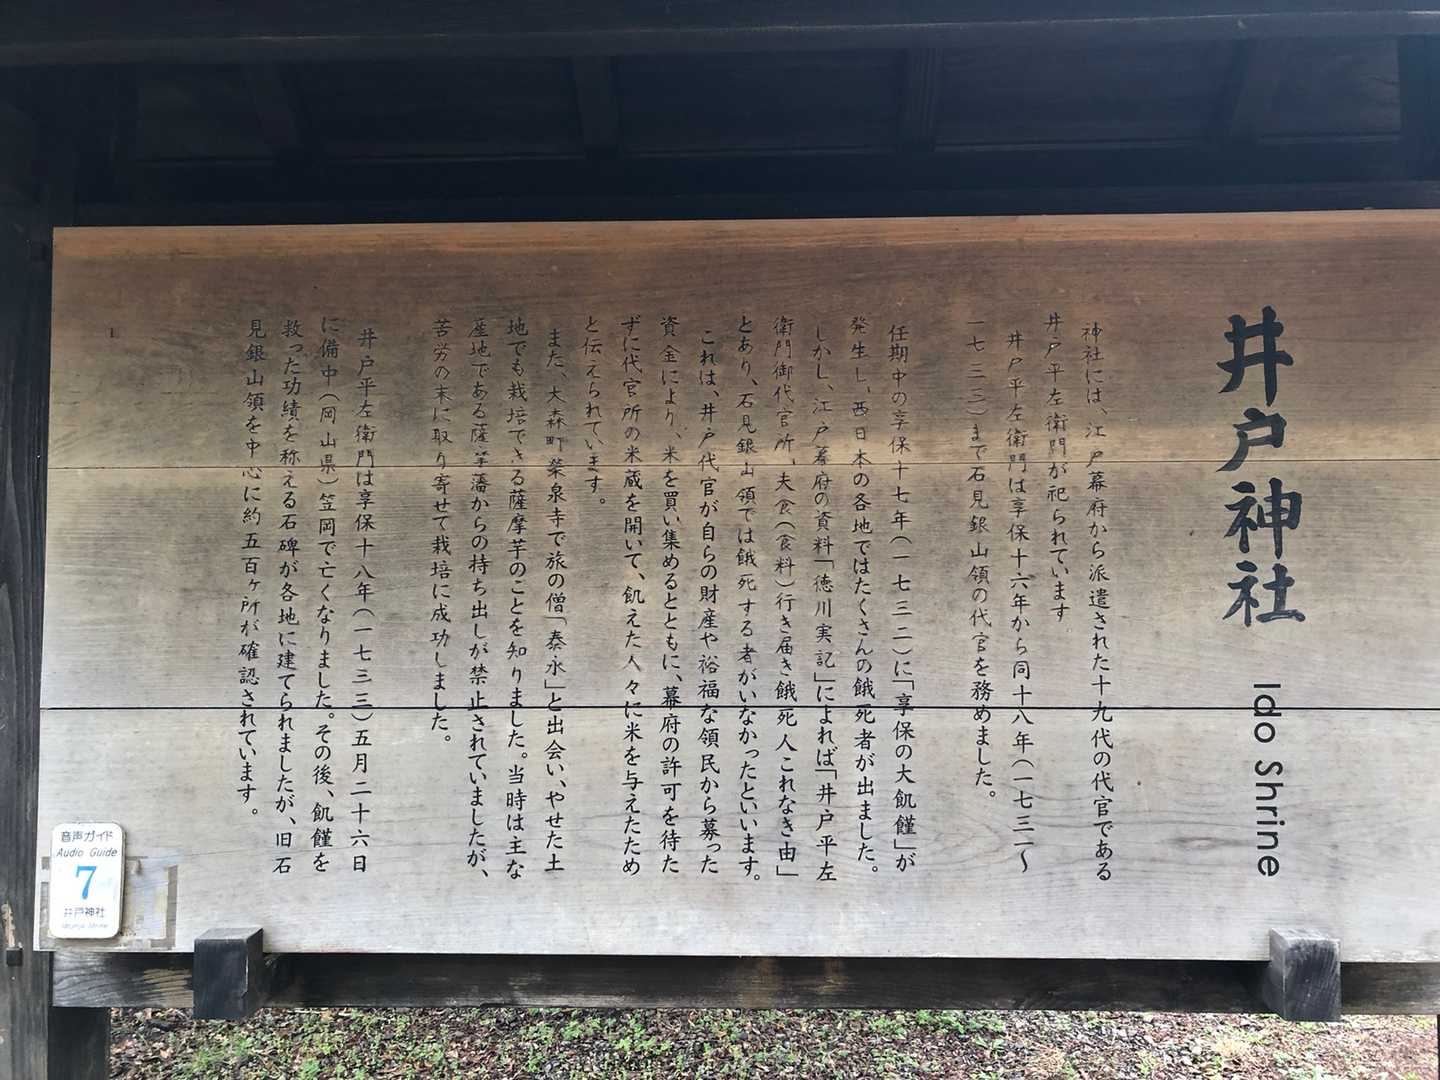 井戸神社 Ido Shrine
神社には、江戸幕府から派遣された十九代の代官である
井戸平左衛門が祀られています
井戸平左衛門は享保十六年から同十八年(一七三一〜
一七三三)まで石見銀山領の代官を務めました。
任期中の享保十七年(一七三二)に「享保の大飢饉」が
発生し、西日本の各地ではたくさんの餓死者が出ました。
しかし、江戸幕府の資料「徳川実記」によれば「井戸平左
衛門御代官所、夫食(食料)行き届き餓死人これなき由」
とあり、石見銀山領では餓死する者がいなかったといいます。
これは、井戸代官が自らの財産や裕福な領民から募った
資金により、米を買い集めるとともに、幕府の許可を待た
ずに代官所の米蔵を開いて、飢えた人々に米を与えたため
と伝えられています。
また、大森町栄泉寺で旅の僧「泰永」と出会い、やせた土
地でも栽培できる薩摩芋のことを知りました。当時は主な
産地である薩摩藩からの持ち出しが禁止されていましたが、
苦労の末に取り寄せて栽培に成功しました。
井戸平左衛門は享保十八年(一七三三)五月二十六日
に備中(岡山県)笠岡で亡くなりました。その後、飢饉を
救った功績を称える石碑が各地に建てられましたが、旧石
見銀山領を中心に約五百ヶ所が確認されています。
音声ガイド
Audio Guide
7
井戸神社